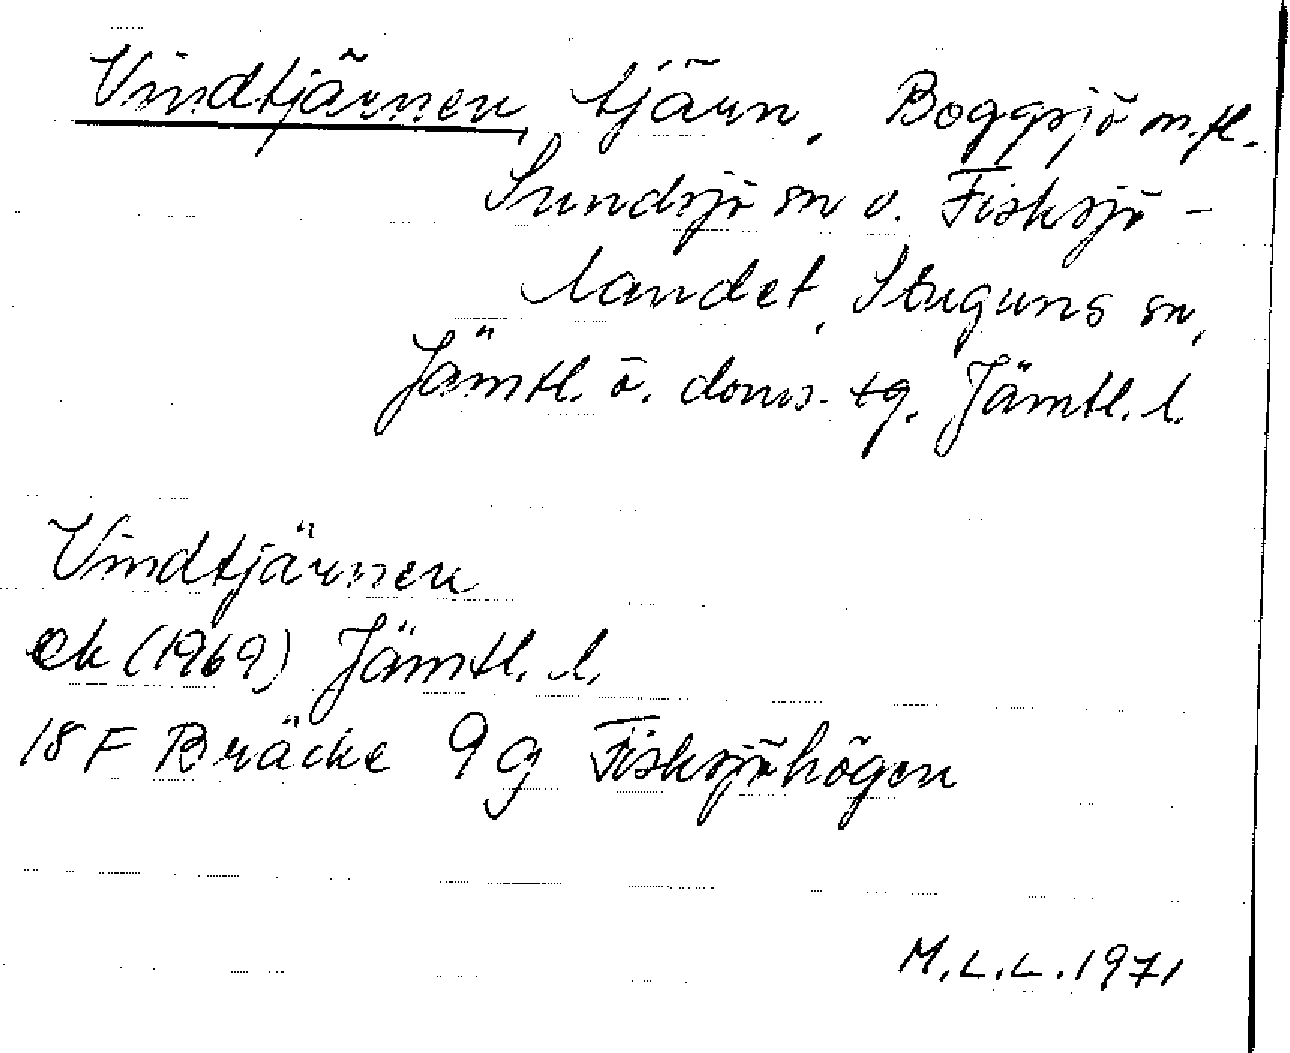 Vindtjärnen, tjärn, Boggsjö m.fl.
Sundsjö sn o. Fisksjö-
landet, Stuguns sn,
Jämtl. ö. doms. tg. Jämtl. l.
Vindtjärnen
ek (1969) Jämtl. l.
18 F Bräcke 9 g Fisksjöhögen
M.L.L. 1971